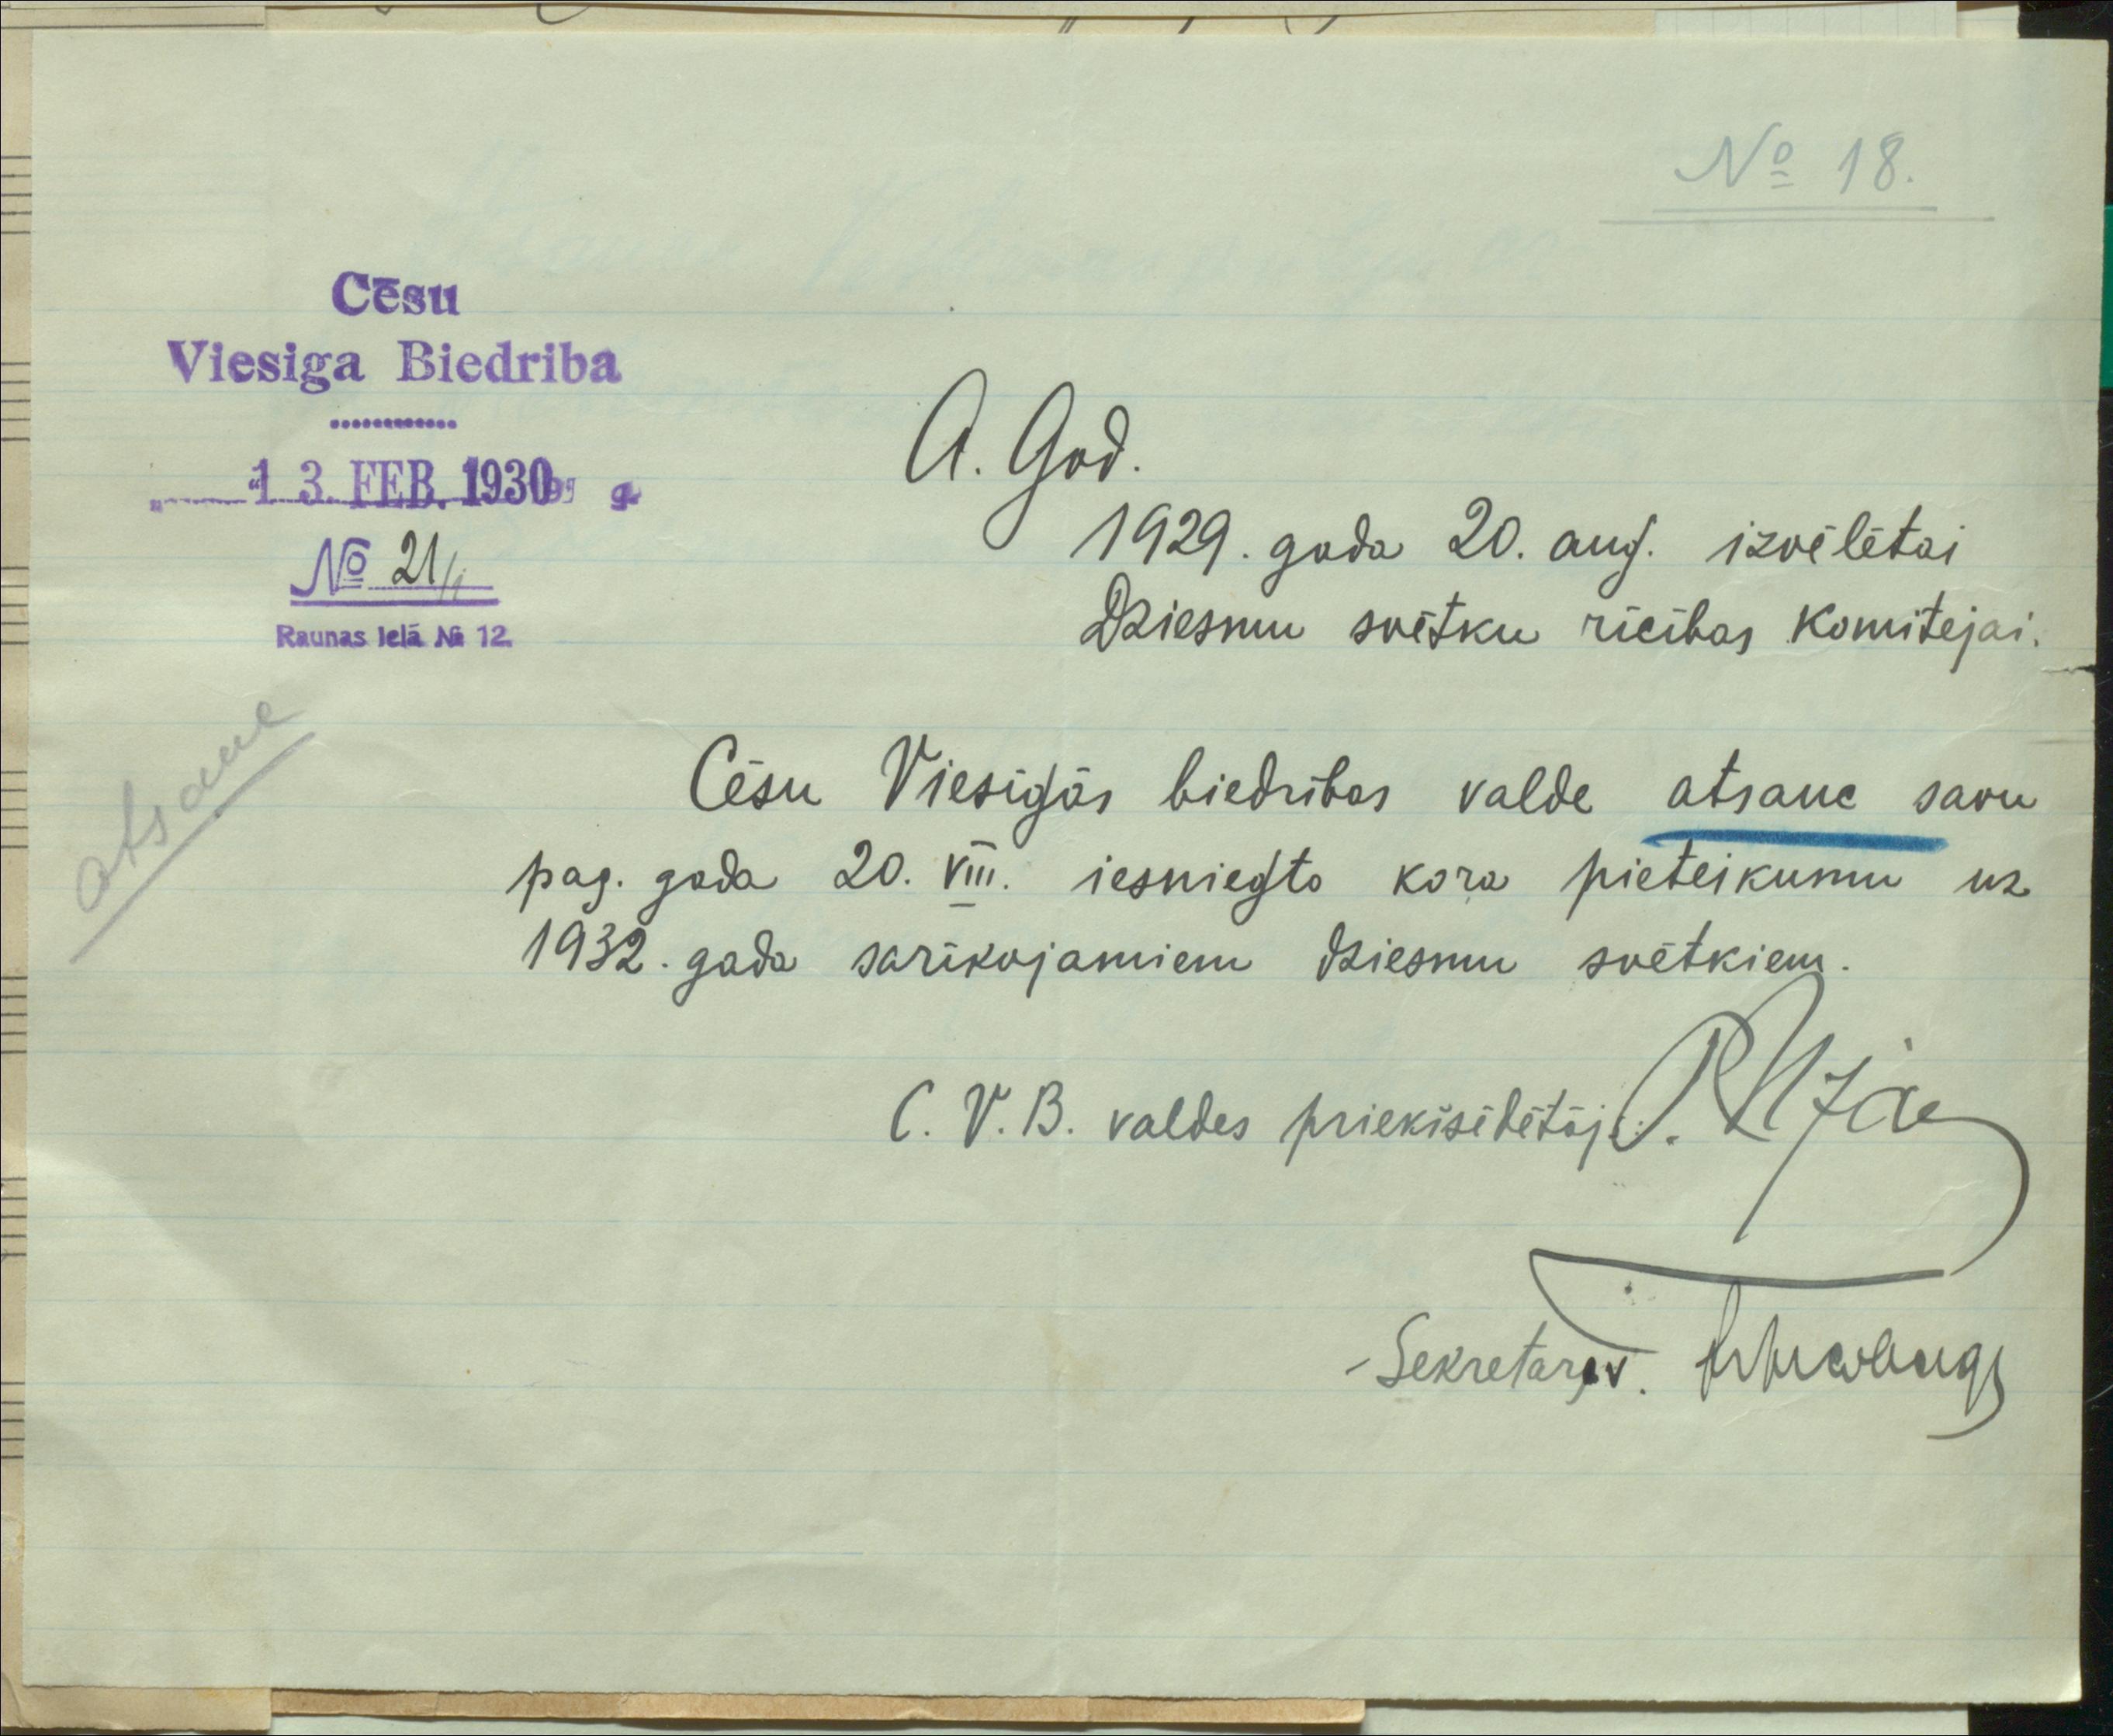 № 18.
Cēsu
Viesiga Biedriba
13. FEB. 1930 g
№ 21
Raunas ielā № 12.
A. God.
1929. gada 20. aug. izvēlētai
Dziesmu svētku rīcības komitejai.
atsauc
Cēsu Viesīgās biedrības valde atsauc savu
pag. gada 20. VIII. iesniegto kora pieteikumu uz
1932. gada sarīkojamiem dziesmu svētkiem.
C. V. B. valdes priekšsēdētāj
Sekretārs v.